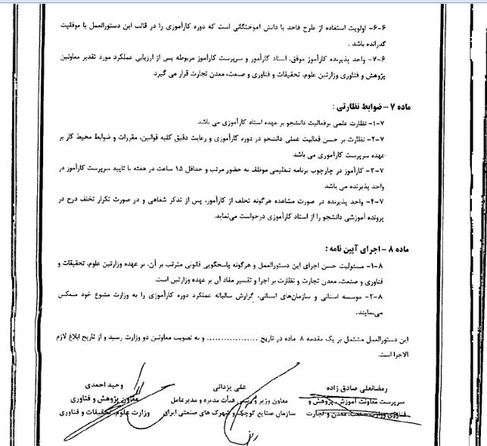 ۶-۶- اولویت استفاده از طرح فاخد با دانش آموختگانی است که دوره کارآموزی را در قالب این دستورالعمل با موفقیت
گذرانده باشد .
۷-۶- واحد پذیرنده کارآموز موفق، استاد کارآموز و سرپرست کارآموز مربوطه پس از ارزیابی عملکرد مورد تقدیر معاونین
پژوهش و فناوری وزارتین علوم، تحقیقات و فناوری و صنعت، معدن تجارت قرار می گیرد.
ماده ۷ – ضوابط نظارتی :
۱-۷- نظارت علمی برفعالیت دانشجو بر عهده استاد کارآموزی می باشد.
۲-۷- نظارت بر حسن فعالیت عملی دانشجو در دوره کارآموزی و رعایت دقیق کلیه قوانین، مقررات و ضوابط محیط کار بر
عهده سرپرست کارآموزی می باشد.
۳-۷- کارآموز در چارچوب برنامه تنظیمی موظف به حضور مرتب و حداقل ۱۵ ساعت در هفته با تایید سرپرست کارآموز در
واحد پذیرنده می باشد
۴-۷- واحد پذیرنده در صورت مشاهده هرگونه تخلف از کارآموز، پس از تذکر شفاهی و در صورت تکرار تخلف درج در
پرونده آموزشی دانشجو را از استاد کارآموزی درخواست می‌نماید.
ماده ۸ – اجرای آیین نامه :
۱-۸- مسئولیت حسن اجرای این دستورالعمل و هرگونه پاسخگویی قانونی مترتب بر آن، بر عهده وزارتین علوم، تحقیقات و
فناوری و صنعت، معدن تجارت و نظارت بر اجرا و تفسیر مفاد آن بر عهده وزارتین است
۲-۸- موسسه استانی و سازمان‌های استانی، گزارش سالیانه عملکرد دوره کارآموزی را به وزارت متبوع خود منعکس
می‌نمایند.
این دستورالعمل مشتمل بر یک مقدمه ۸ ماده در تاریخ .................... و به تصویب معاونین دو وزارت رسید و از تاریخ ابلاغ لازم
الاجرا است.
رمضانعلی صادق زاده
سرپرست معاونت آموزش، پژوهش و
فناوری وزارت صنعت، معدن و تجارت
علی یزدانی
معاون وزیر و رئیس هیأت مدیره و مدیرعامل
سازمان صنایع کوچک و شهرک های صنعتی ایران
وحید احمدی
معاون پژوهش و فناوری
وزارت علوم، تحقیقات و فناوری